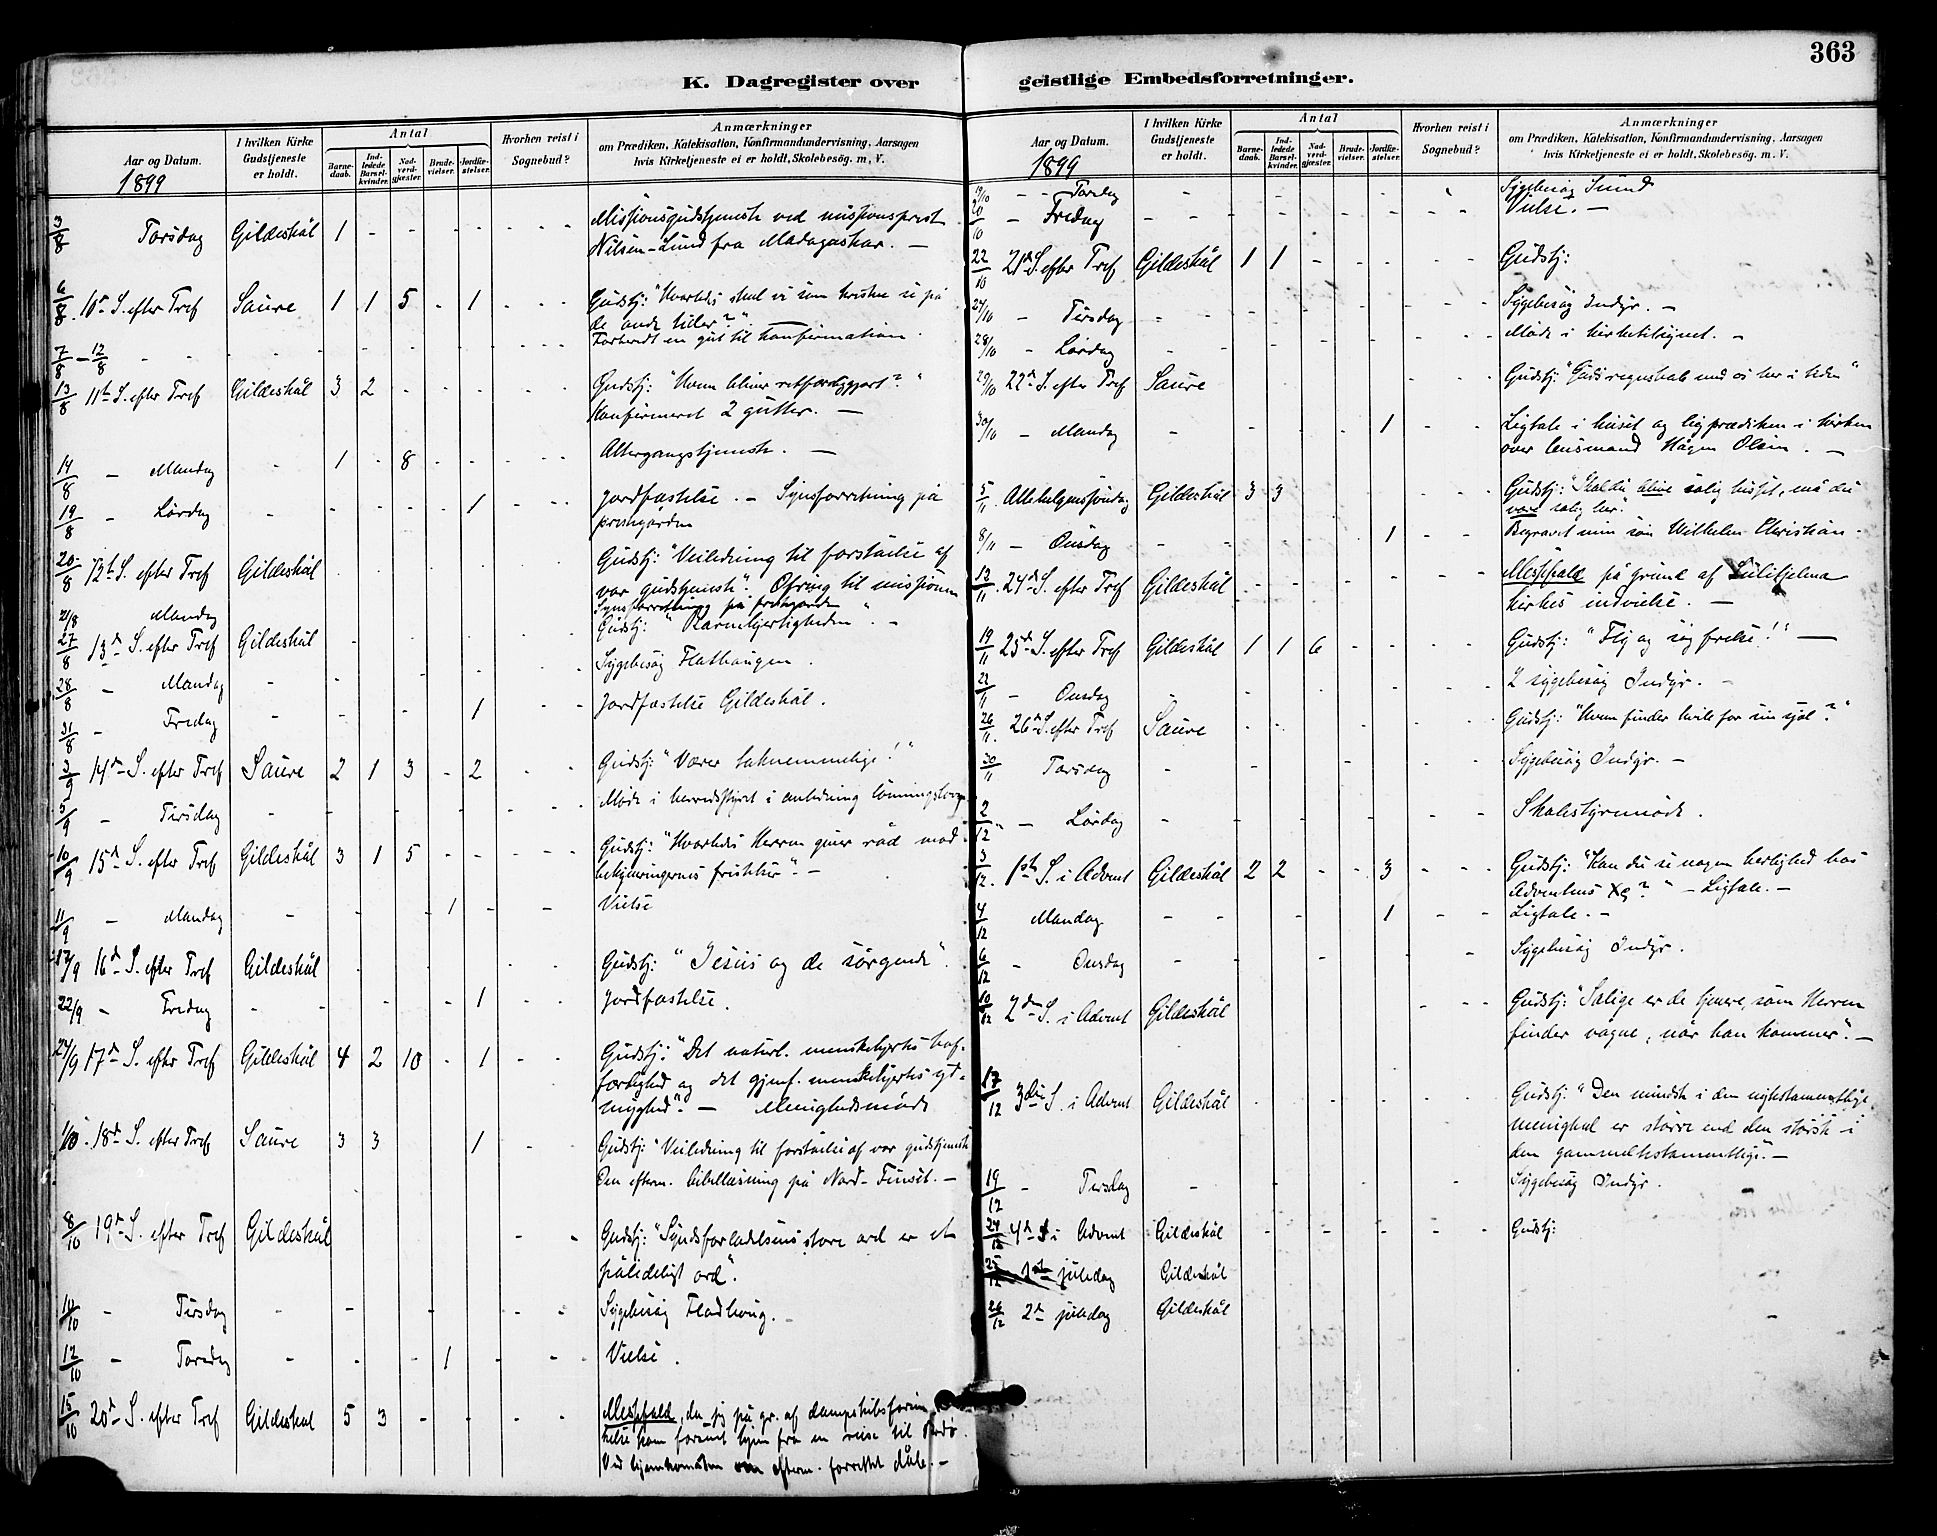 363
K. Dagregister over
geistlige Embedsforretninger.
Aar og Datum.
1899
I hvilken Kirke Gudstjeneste er holdt.
Antal
Barnedaab.
Indledede Barselkvinder.
Nadverdgjæster.
Brudevielser.
Jordfæstelser.
Hvorhen reist i Sognebud?
Anmærkninger
om Prædiken, Katekisation, Konfirmandundervisning, Aarsagen
hvis Kirketjeneste ei er holdt, Skolebesög. m, V.
3/8 Torsdag Gildeskål 1 - - - - - - Missionsgudstjeneste ved missionsprest
Nilsen-Lund fra Madagaskar. —
6/8. 10de S. efter Tref Saure 1 1 5 - 1 - - Gudstj: "Hvorledes skal vi som kristne se på
de onde tider?". —
7/8 - 12/8 - - - - - - Forberedt en gut til konfirmation.
13/8 11te S. efter Tref Gildeskål 3 2 - - - - - Gudstj: "Hvem bliver retfærdiggjort?"
Konfirmeret 2 gutter. —
14/8 - Mandag - 1 - 8 - - - - Altergangstjeneste. —
19/8 - Lørdag - - - - - 1 - - Jordfæstelse. — Synsforretning på
prestegården
20/8 12te S. efter Tref Gildeskål Gudstj: "Veiledning til forståelse af
vor gudstjeneste". Ofring til missionen
21/8 Mandag Synsforretning på prestegården
27/8 13de S. efter Tref Gildeskål Gudstj: "Barmhjertigheden". -
28/8 - Mandag - - - - - Sygebesøg Flathaugen.
31/8 - Fredag - - - 1 - - Jordfæstelse Gildeskål.
3/9 14de S. efter Tref Saure 2 1 3 - 2 - - Gudstj: "Værer taknemmelige!"
5/9 - Tirsdag - - - - - - - Møde i herredsstyret i anledning lønningslov
10/9 15de S. efter Tref Gildeskål 3 1 5 - - - - Gudstj: "Hvorledes Herren giver råd mod
bekymringernes fristelser". —
11/9 - Mandag - - - 1 - - Vielse
17/9 16de S. efter Tref Gildeskål Gudstj: "Jesus og de sørgende".
22/9 - Fredag - - - 1 - - Jordfæstelse.
24/9 17de S. efter Tref Gildeskål 4 2 10 - 1 - - Gudstj: "Det naturl. menskehjertes hof-
færdighed og det gjenf. menskehjertes yd-
myghed". — Menighedsmøde
1/10. 18de S. efter Tref Saure 3 3 1 - - Gudstj: "Veiledning til forståelse af vor gudstjeneste
Den efterm. bibellæsning på Nord-Finset. —
8/10 19de S. efter Tref Gildeskål - - Gudstj: "Syndsforladelsens store ord er et
pålideligt ord".
10/10 - Tirsdag - - - - - Sygebesøg Fladhoug. -
12/10 - Torsdag - - - 1 - - - Vielse.
15/10 20de S. efter Tref Gildeskål 5 3 - - - - Messefald, da jeg på gr. af dampskibsforsin
kelse kom forsent hjem fra en reise til Bodø.
Ved hjemkomsten om efterm. forrettet dåb. —
Aar og Datum.
1899
I hvilken Kirke Gudstjeneste er holdt.
Antal
Barnedaab.
Indledede Barselkvinder.
Nadverdgjæster.
Brudevielser.
Jordfæstelser.
Hvorhen reist i Sognebud?
Anmærkninger
om Prædiken, Katekisation, Konfirmandundervisning, Aarsagen
hvis Kirketjeneste ei er holdt, Skolebesög. m. V.
19/10 - - Torsdag - - - - Sygebesøg Sund
20/10 - Fredag - - - - - - - Vielse. —
22/10 21de S. efter Tref Gildeskål 1 1 - - - - - Gudstj:
24/10 - Tirsdag - - - - - - Sygebesøg Indyr. —
28/10 - Lørdag - - - - - - Møde i kirketilsynet. —
29/10 22de S. efter Tref Saure - - Gudstj: "Guds regnskab med os her i tiden"
30/10 - Mandag - - - - - 1 - - Ligtale i huset og ligprædiken i kirken
over lensmand Hågen Olsen. —
5/11. Allehelgensøndag Gildeskål 3 3 - - Gudstj: "Skal du blive salig hisset, må du
være salig her.
8/11 - Onsdag - - 1 - - Begravet min søn Wilhelm Christian.
12/11. 24de S. efter Tref Gildeskål - - - - - - - Messefald på grund af Sulitjelma
kirkes indvielse. —
19/11 25de S. efter Tref Gildeskål 1 1 6 - - - - Gudstj: "Fly og søg frelse!" —
22/11 - Onsdag - - - - - - 2 sygebesøg Indyr. —
26/11. 26de S. efter Tref Saure - - - - - - Gudstj: "Hvem finder hvile for sin sjæl?"
30/11 Torsdag - - - - - - Sygebesøg Indyr. —
2/12 - Lørdag - - - - - - - Skolestyremøde.
3/12. 1ste S. i Advent Gildeskål 2 2 - - 3 - - Gudstj: "Kan du se nogen herlighed hos
Adventens Xs?" — Ligtale. —
4/12 Mandag - - - 1 - - Ligtale. —
6/12 - Onsdag - - - - - Sygebesøg Indyr.
10/12 2den S. i Advent Gildeskål - - - Gudstj: "Salige er de tjenere, som Herren
finder vågne, når han kommer". —
17/12 3die S. i Advent Gildeskål - - - - - - - Gudstj: "Den mindste i den nytestamentlige
menighed er større end den største i
den gammeltestamentlige". —
19/12 - Tirsdag - - - - Sygebesøg Indyr.
24/12 4de S i Advent Gildeskål - - - - - - - Gudstj:
25/12 1ste juledag Gildeskål
26/12 2den juledag Gildeskål